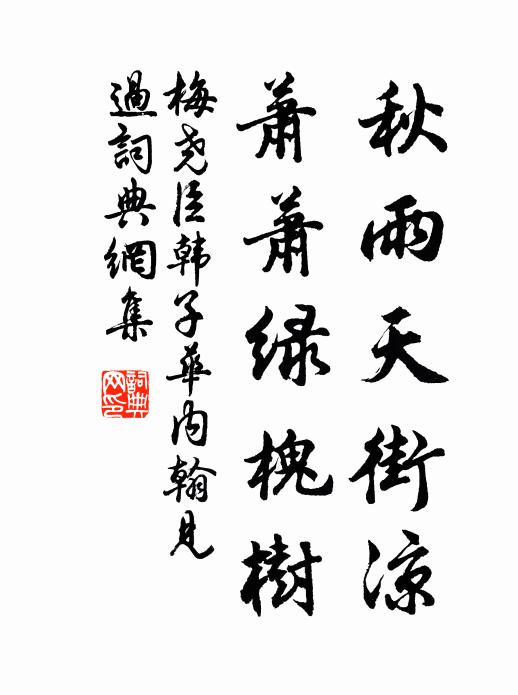 秋雨天街涼
蕭蕭緑槐樹
梅尧臣韩子華内翰見
過詞典網集
詞典网印